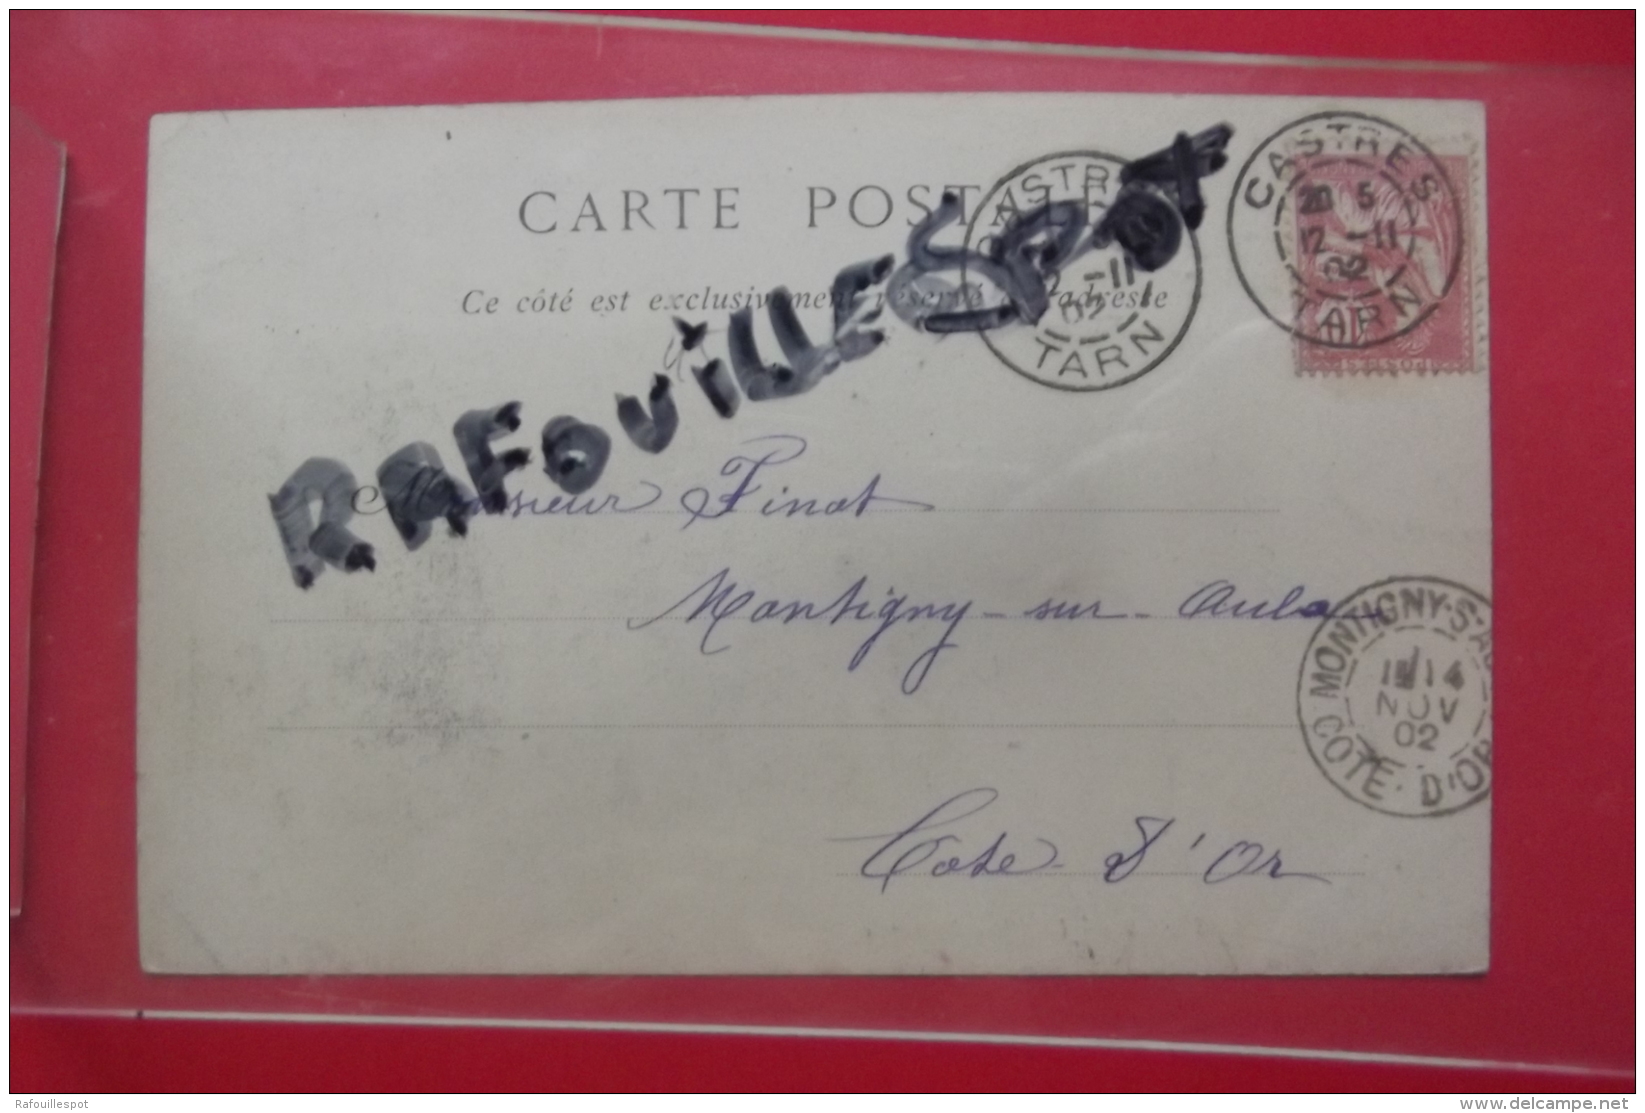 CARTE POSTALE
Ce côté est exclusivement réservé à l'adresse
RAFOUILLESPOT
CASTRES
12 -11
02
TARN
CASTRES
20 5
12 -11
02
TARN
POSTES
Monsieur Finot
Montigny-sur-Aube
Côte-d'Or
MONTIGNY-S-AU
14
NOV
02
COTE-D'OR
Rafouillespot
delcampe.net